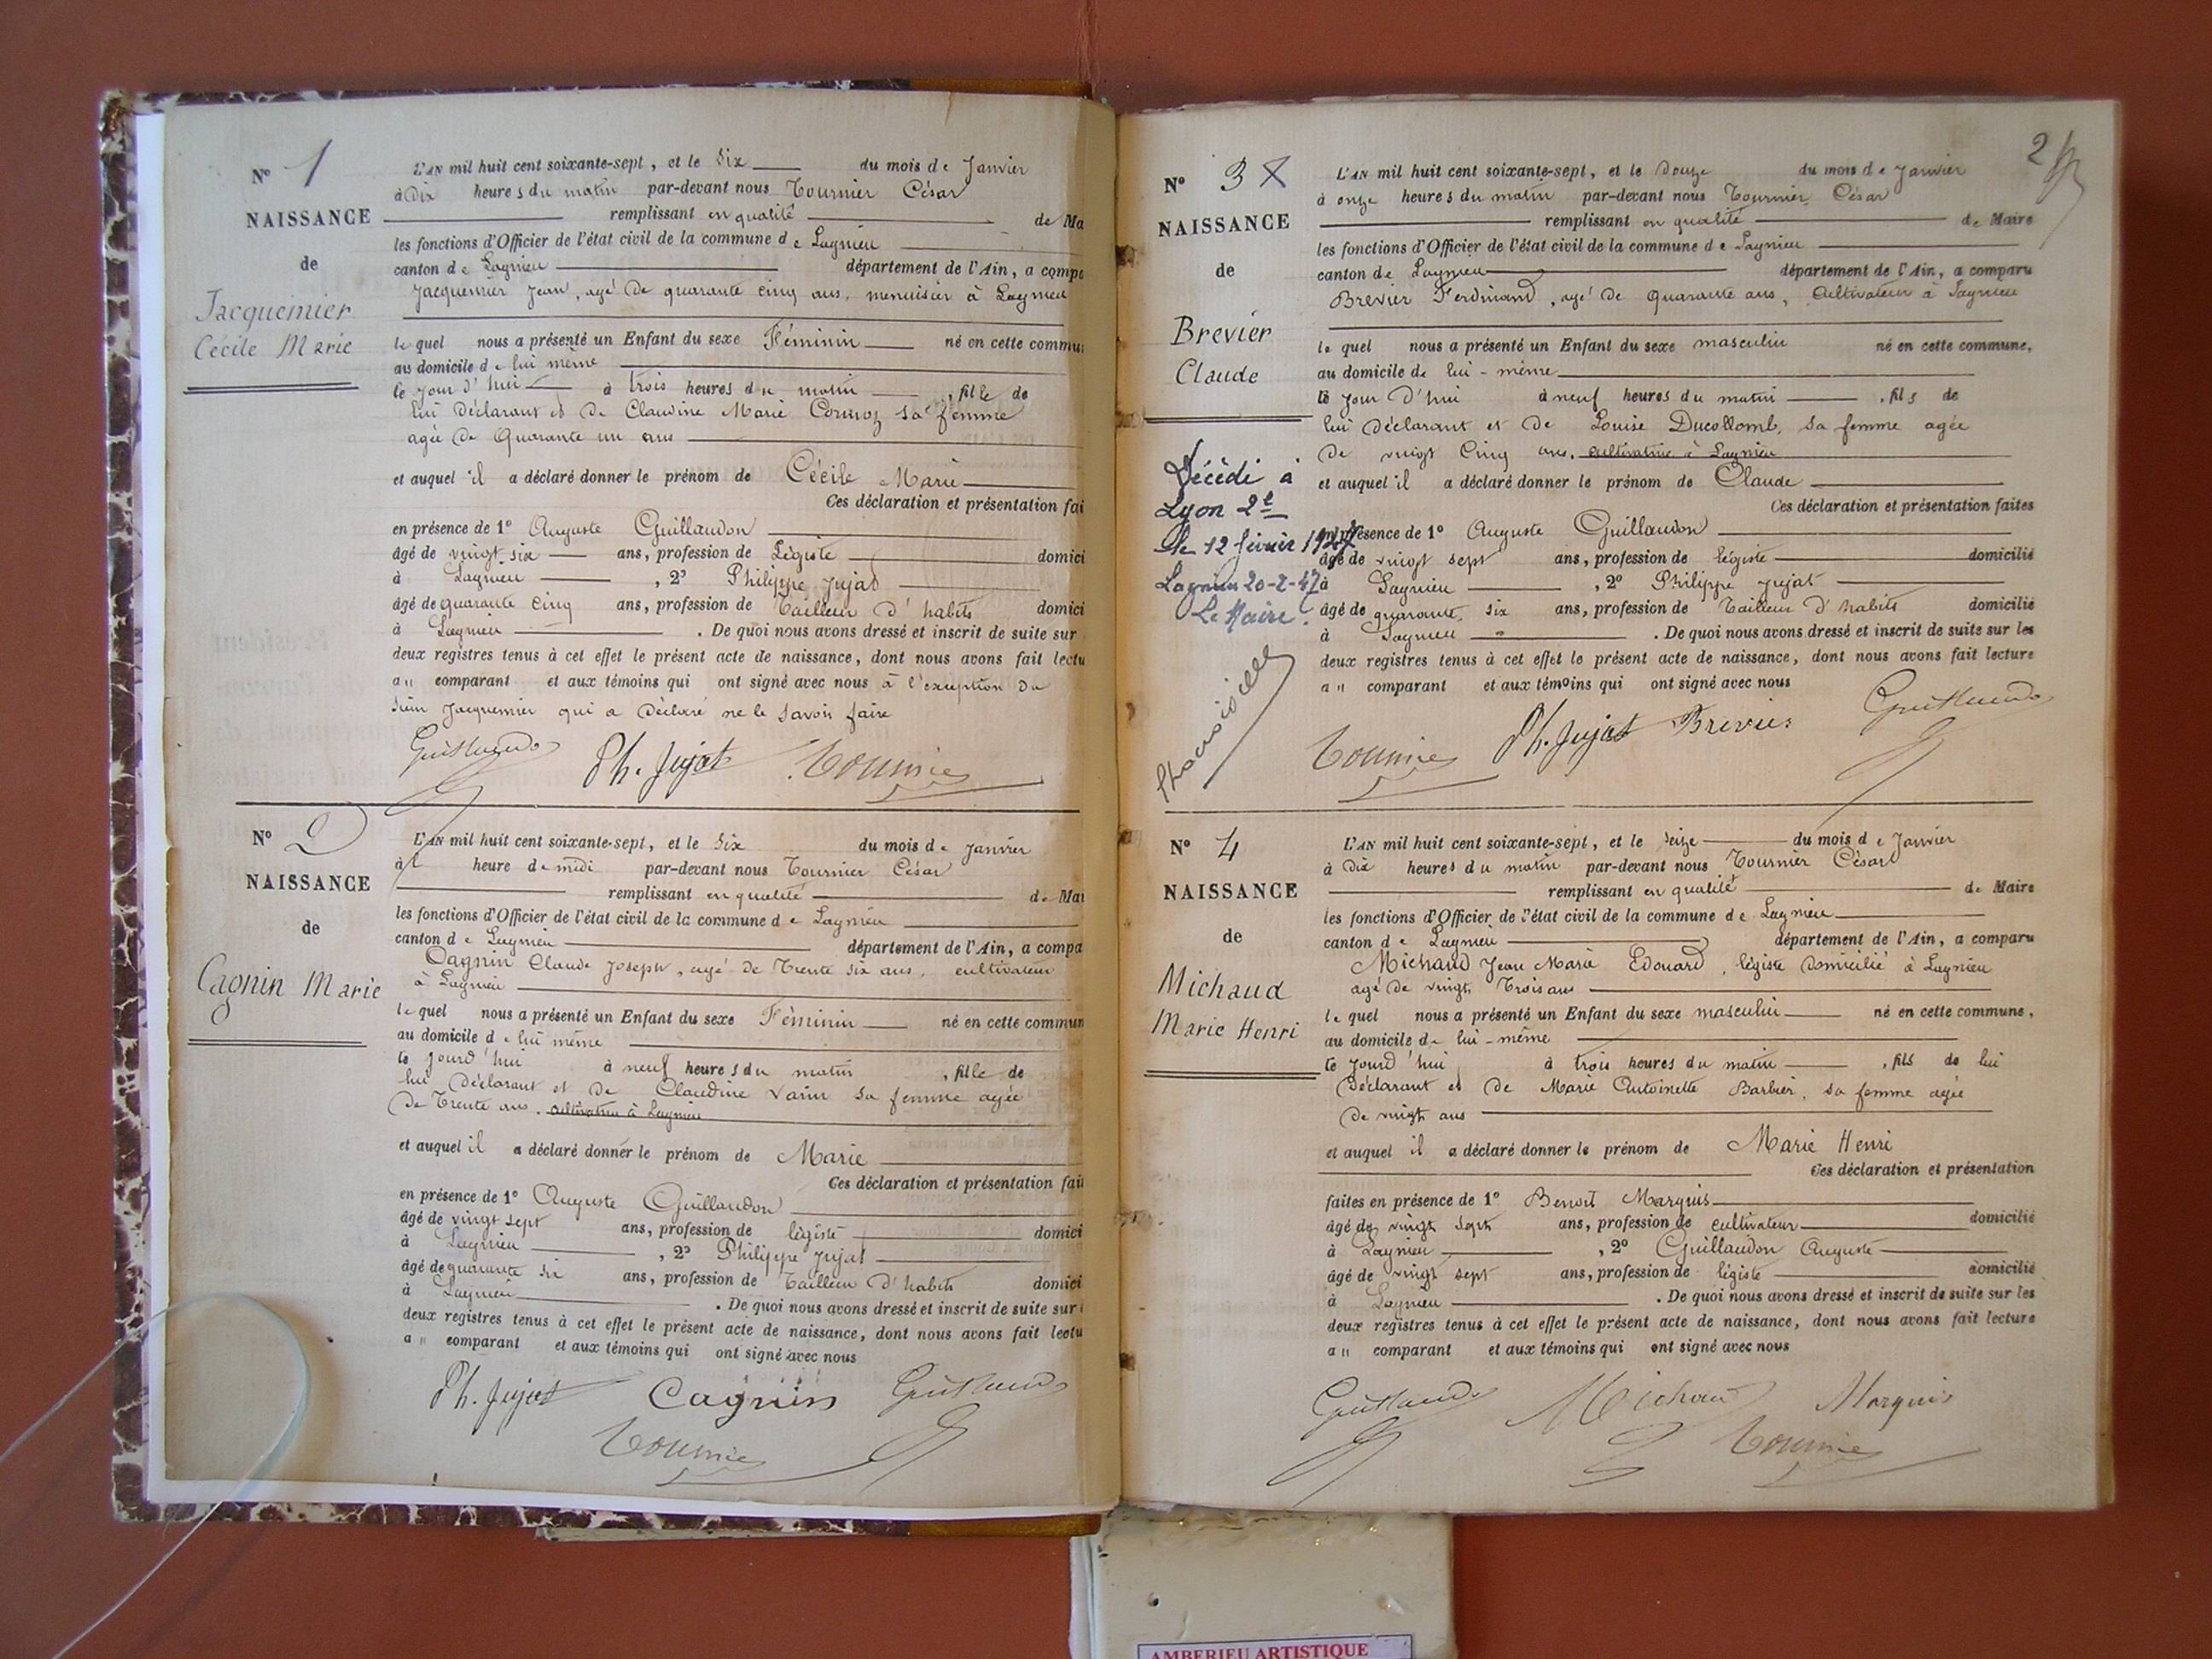 N° 1
NAISSANCE
de
Jacquemier
Cécile Marie
L'AN mil huit cent soixante-sept, et le Six du mois de Janvier
à Dix heures du matin par-devant nous Tournier César
remplissant en qualité de Ma
les fonctions d'Officier de l'état civil de la commune de Lagnieu
canton de Lagnieu département de l'Ain, a compa
Jacquemier Jean, agé de quarante cinq ans, menuisier à Lagnieu
lequel nous a présenté un Enfant du sexe Féminin né en cette commu
au domicile de lui même
le jour d'hui à trois heures du matin, fille de
lui Déclarant et de Claudine Marie sa femme
agée de Quarante un ans
et auquel il a déclaré donner le prénom de Cécile Marie
Ces déclaration et présentation fai
en présence de 1° Auguste Guillaudon
âgé de vingt six ans, profession de Légiste domici
à Lagnieu, 2° Philippe Jujat
âgé de quarante cinq ans, profession de Tailleur d'habits domici
à Lagnieu. De quoi nous avons dressé et inscrit de suite sur
deux registres tenus à cet effet le présent acte de naissance, dont nous avons fait lectu
au comparant et aux témoins qui ont signé avec nous à l'exception du
sieur Jacquemier qui a Déclaré ne le savoir faire
Guillaudon Ph. Jujat Tournier
N° 2
NAISSANCE
de
Cagnin Marie
L'AN mil huit cent soixante-sept, et le Six du mois de Janvier
à l heure de midi par-devant nous Tournier César
remplissant en qualité de Mai
les fonctions d'Officier de l'état civil de la commune de Lagnieu
canton de Lagnieu département de l'Ain, a compa
Cagnin Claude Joseph, agé de Trente six ans, cultivateur
à Lagnieu
lequel nous a présenté un Enfant du sexe Féminin né en cette commun
au domicile de lui même
le jourd'hui à neuf heures du matin, fille de
lui Déclarant et de Claudine Varin sa femme agée
de Trente ans. cultivatrice à Lagnieu
et auquel il a déclaré donner le prénom de Marie
Ces déclaration et présentation fai
en présence de 1° Auguste Guillaudon
âgé de vingt sept ans, profession de légiste domici
à Lagnieu, 2° Philippe Jujat
âgé de quarante six ans, profession de Tailleur d'habits domici
à Lagnieu. De quoi nous avons dressé et inscrit de suite sur
deux registres tenus à cet effet le présent acte de naissance, dont nous avons fait lectu
au comparant et aux témoins qui ont signé avec nous
Ph. Jujat Cagnin Guillaudon
Tournier
2
N° 3 X
NAISSANCE
de
Brevier
Claude
Décédé à
Lyon 2e
le 12 février 1947
Lagnieu 20-2-47
Le Maire.
L'AN mil huit cent soixante-sept, et le Douze du mois de Janvier
à onze heures du matin par-devant nous Tournier César
remplissant en qualité de Maire
les fonctions d'Officier de l'état civil de la commune de Lagnieu
canton de Lagnieu département de l'Ain, a comparu
Brevier Ferdinand, agé de quarante ans, Cultivateur à Lagnieu
lequel nous a présenté un Enfant du sexe masculin né en cette commune,
au domicile de lui-même
le jour d'hui à neuf heures du matin, fils de
lui Déclarant et de Louise Ducollomb, sa femme agée
de vingt Cinq ans. cultivatrice à Lagnieu
et auquel il a déclaré donner le prénom de Claude
Ces déclaration et présentation faites
en présence de 1° Auguste Guillaudon
âgé de vingt sept ans, profession de légiste domicilié
à Lagnieu, 2° Philippe Jujat
âgé de quarante six ans, profession de Tailleur d'habits domicilié
à Lagnieu. De quoi nous avons dressé et inscrit de suite sur les
deux registres tenus à cet effet le présent acte de naissance, dont nous avons fait lecture
au comparant et aux témoins qui ont signé avec nous
Tournier Ph. Jujat Brevier Guillaudon
N° 4
NAISSANCE
de
Michaud
Marie Henri
L'AN mil huit cent soixante-sept, et le Seize du mois de Janvier
à Dix heures du matin par-devant nous Tournier César
remplissant en qualité de Maire
les fonctions d'Officier de l'état civil de la commune de Lagnieu
canton de Lagnieu département de l'Ain, a comparu
Michaud Jean Marie Edouard, légiste domicilié à Lagnieu
agé de vingt Trois ans
lequel nous a présenté un Enfant du sexe masculin né en cette commune,
au domicile de lui-même
le jourd'hui à trois heures du matin, fils de lui
Déclarant et de Marie Antoinette Barbier, sa femme agée
de vingt ans
et auquel il a déclaré donner le prénom de Marie Henri
Ces déclaration et présentation
faites en présence de 1° Benoit Marquis
âgé de vingt sept ans, profession de cultivateur domicilié
à Lagnieu, 2° Guillaudon Auguste
âgé de vingt sept ans, profession de légiste domicilié
à Lagnieu. De quoi nous avons dressé et inscrit de suite sur les
deux registres tenus à cet effet le présent acte de naissance, dont nous avons fait lecture
au comparant et aux témoins qui ont signé avec nous
Guillaudon Michaud Marquis
Tournier
AMBERIEU ARTISTIQUE